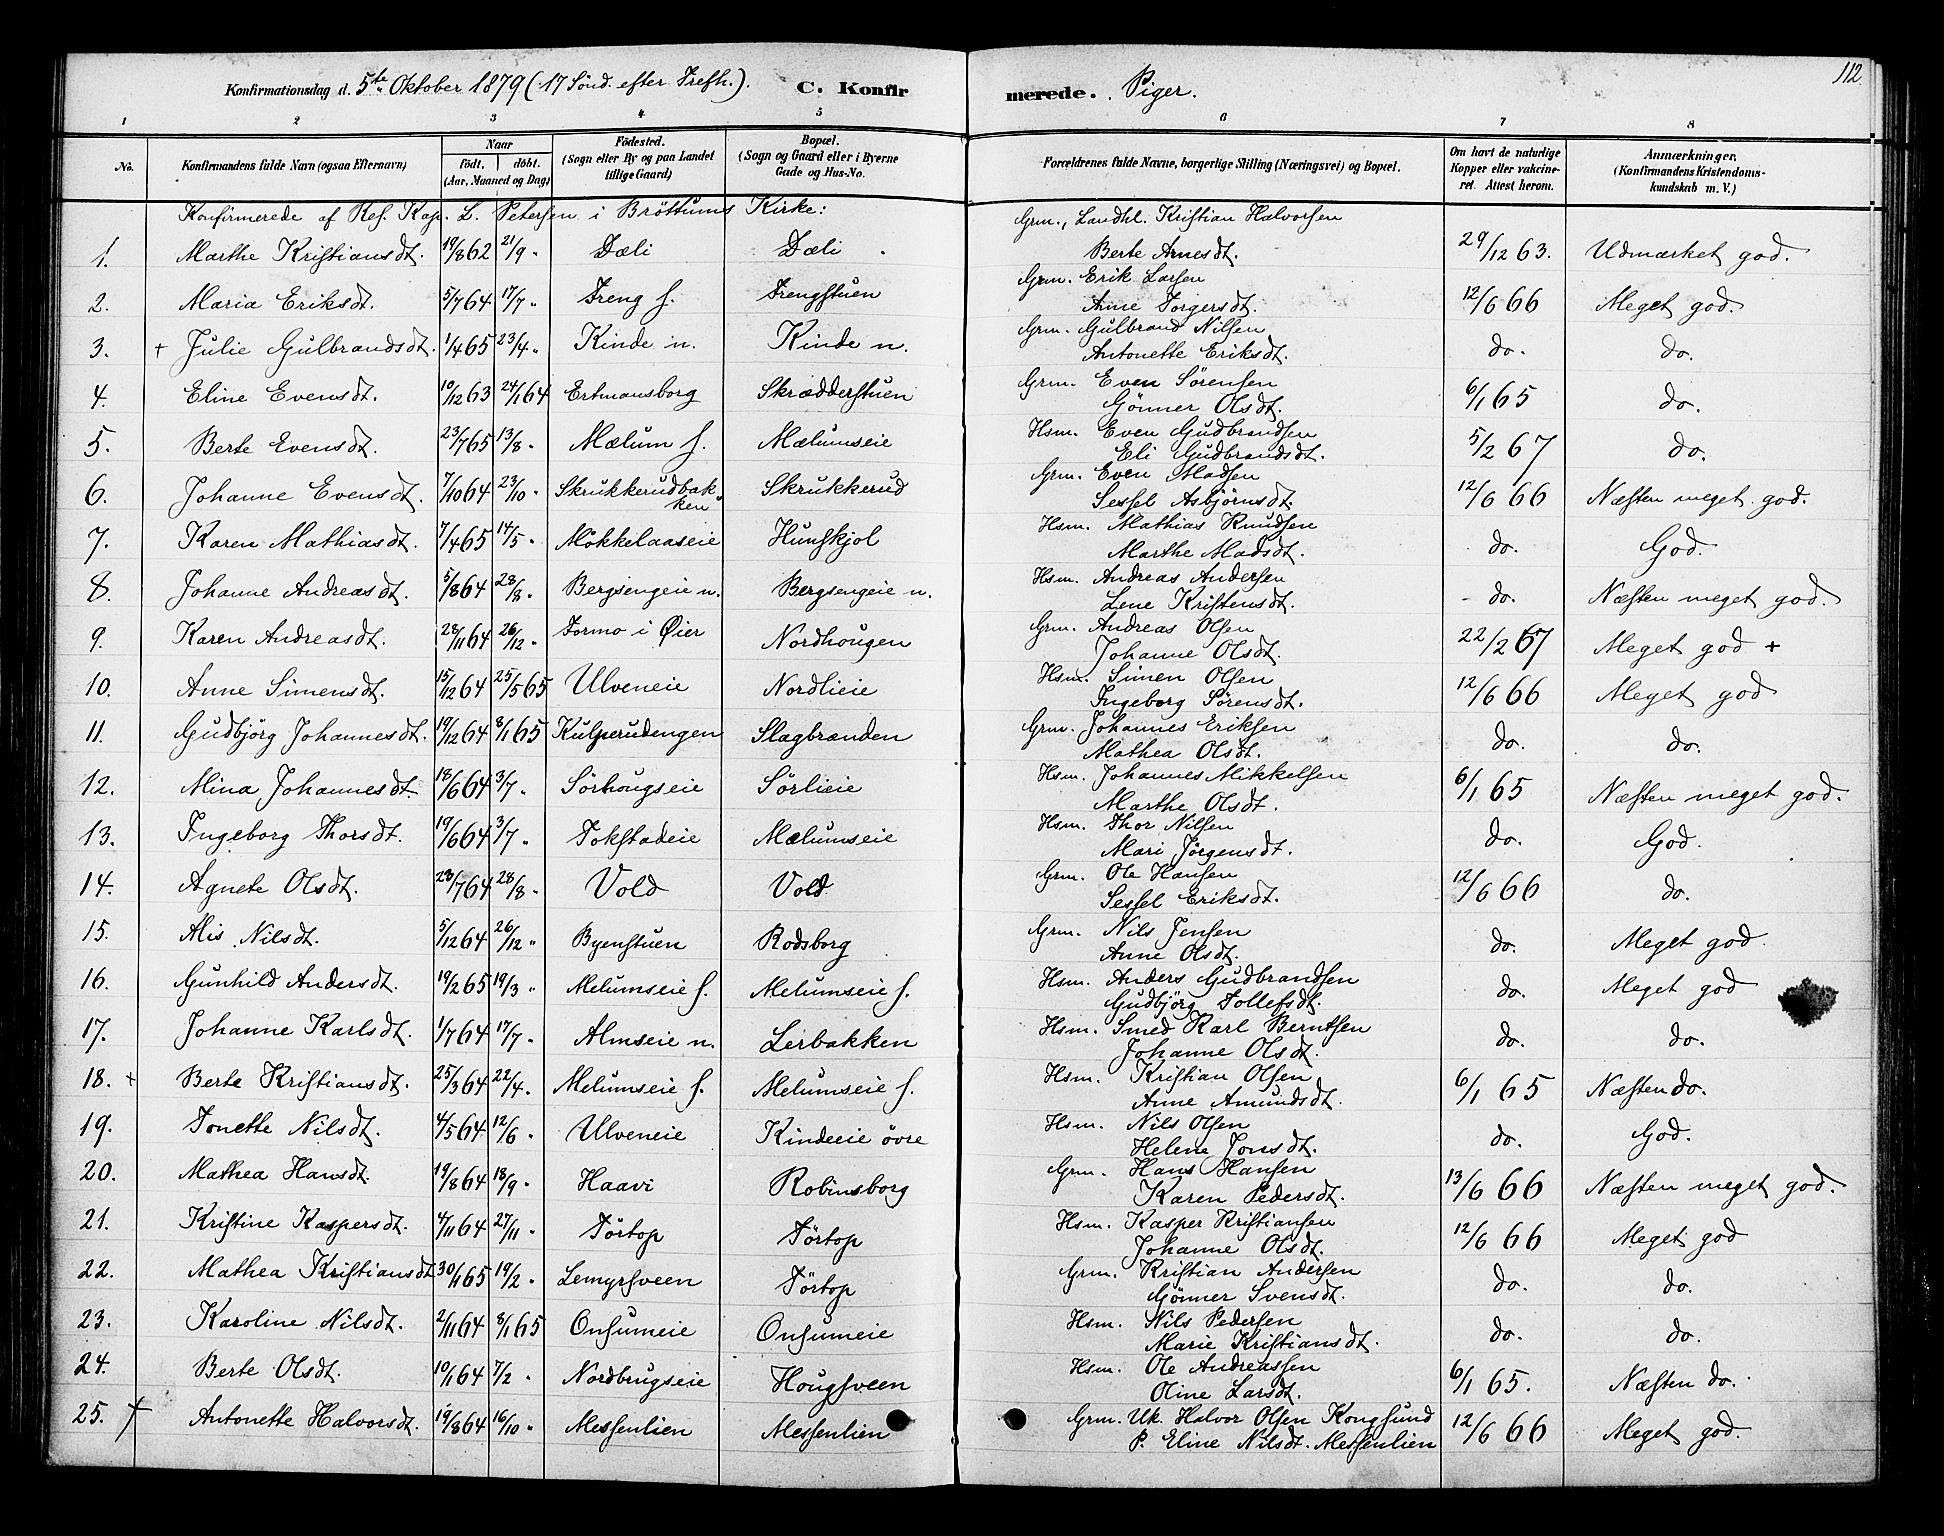 112
Konfirmationsdag d. 5te Oktober 1879 (17 Sönd. efter Trefh.). C. Konfirmerede. Piger.
1 2 3 4 5 6 7 8
No. Konfirmandens fulde Navn (ogsaa Efternavn) Naar födt. döbt. (Aar, Maaned og Dag) Födested. (Sogn eller By og paa Landet tillige Gaard) Bopæl. (Sogn og Gaard eller i Byerne Gade og Hus-No. Forældrenes fulde Navne, borgerlige Stilling (Næringsvei) og Bopæl. Om havt de naturlige Kopper eller vakcineret. Attest herom. Anmærkninger. (Konfirmandens Kristendomskundskab m. V.)
Konfirmerede af Res. Kap. L. Petersen i Bröttums Kirke:
1. Marthe Kristiansdt. 19/8 62 21/9 " Dæli Dæli Grm., Landhl. Kristian Halvorsen
Berte Arnesdt. 29/12 63. Udmærket god.
2. Maria Eriksdt. 5/7 64 17/7 " Freng s. Frengstuen Grm. Erik Larsen
Anne Torgersdt. 12/6 66 Meget god.
3. + Julie Gulbrandsdt. 1/4 65 23/4 " Kinde n. Kinde n. Grm. Gulbrand Nilsen
Antonette Eriksdt. do. do.
4. Eline Evensdt. 10/12 63 24/1 64 Ertmansborg Skrædderstuen Grm. Even Sörensen
Gönner Olsdt. 6/1 65 do.
5. Berte Evensdt. 23/7 65 13/8 " Mælum s. Mælumseie Hsm. Even Gudbrandsen
Eli Gudbrandsdt. 5/2 67 do.
6. Johanne Evensdt. 7/10 64 23/10 " Skrukkerudbakken Skrukkerud Grm. Even Madsen
Sessel Asbjörnsdt. 12/6 66 Næsten meget god.
7. Karen Mathiasdt. 7/4 65 14/5 " Mökkelaaseie Hunskjol Hsm. Mathias Knudsen
Marthe Madsdt. do. God.
8. Johanne Andreasdt. 5/8 64 28/8 " Bergsengeie n. Bergsengeie n. Hsm. Andreas Andersen
Lene Kristensdt. do. Næsten meget god.
9. Karen Andreasdt. 28/11 64 26/12 " Formo i Øier Nordhougen Grm. Andreas Olsen
Johanne Olsdt. 22/2 67 Meget god +
10. Anne Simensdt. 15/12 64 25/5 65 Ulveneie Nordlieie Hsm. Simen Olsen
Ingeborg Sörensdt. 12/6 66 Meget god
11. Gudbjörg Johannesdt. 19/12 64 8/1 65 Kulperudengen Slagbranden Grm. Johannes Eriksen
Mathea Olsdt. do. do.
12. Mina Johannesdt. 18/6 64 3/7 " Sörhougseie Sörlieie Hsm. Johannes Mikkelsen
Marthe Olsdt. 6/1 65 Næsten meget god.
13. Ingeborg Thorsdt. 19/6 64 3/7 " Tokstadeie Mælumseie Hsm. Thor Nilsen
Mari Jörgensdt. do. God.
14. Agnete Olsdt. 28/7 64 28/8 " Vold Vold Grm. Ole Hansen
Sessel Eriksdt. 12/6 66 do.
15. Alis Nilsdt. 5/12 64 26/12 " Byenstuen Rodsborg Grm. Nils Jensen
Anne Olsdt. do. Meget god.
16. Gunhild Andersdt. 19/2 65 19/3 " Melumseie s. Melumseie s. Hsm. Anders Gudbrandsen
Gudbjörg Tollefsdt. do. Meget god
17. Johanne Karlsdt. 1/7 64 17/7 " Almseie n. Lerbakken Hsm. Smed Karl Berntsen
Johanne Olsdt. do. do.
18. + Berte Kristiansdt. 25/3 64 22/4 " Melumseie s. Melumseie s. Hsm. Kristian Olsen
Anne Amundsdt. 6/1 65 Næsten do.
19. Tonette Nilsdt. 4/5 64 12/6 " Ulveneie Kindeeie övre Hsm. Nils Olsen
Helene Jonsdt. do. God.
20. Mathea Hansdt. 19/8 64 18/9 " Haavi Robinsborg Grm. Hans Hansen
Karen Pedersdt. 13/6 66 Næsten meget god.
21. Kristine Kaspersdt. 4/11 64 27/11 " Törtop Törtop Hsm. Kasper Kristiansen
Johanne Olsdt. 12/6 66 Meget god
22. Mathea Kristiansdt 30/1 65 19/2 " Lemyrsveen Törtop Grm. Kristian Andersen
Gönner Svensdt. do. do.
23. Karoline Nilsdt. 2/11 64 8/1 65 Onsumeie Onsumeie Hsm. Nils Pedersen
Marie Kristiansdt. do. do.
24. Berte Olsdt. 10/1 64 7/2 " Nordbrugseie Hougsveen Hsm. Ole Andreassen
Oline Larsdt. 6/1 65. Næsten do.
25. + Antonette Halvorsdt. 19/8 64 16/10 " Messenlien Messenlien Grm. Uk. Halvor Olsen Kongsund
P. Eline Nilsdt. Messenlien 12/6 66 Meget god.